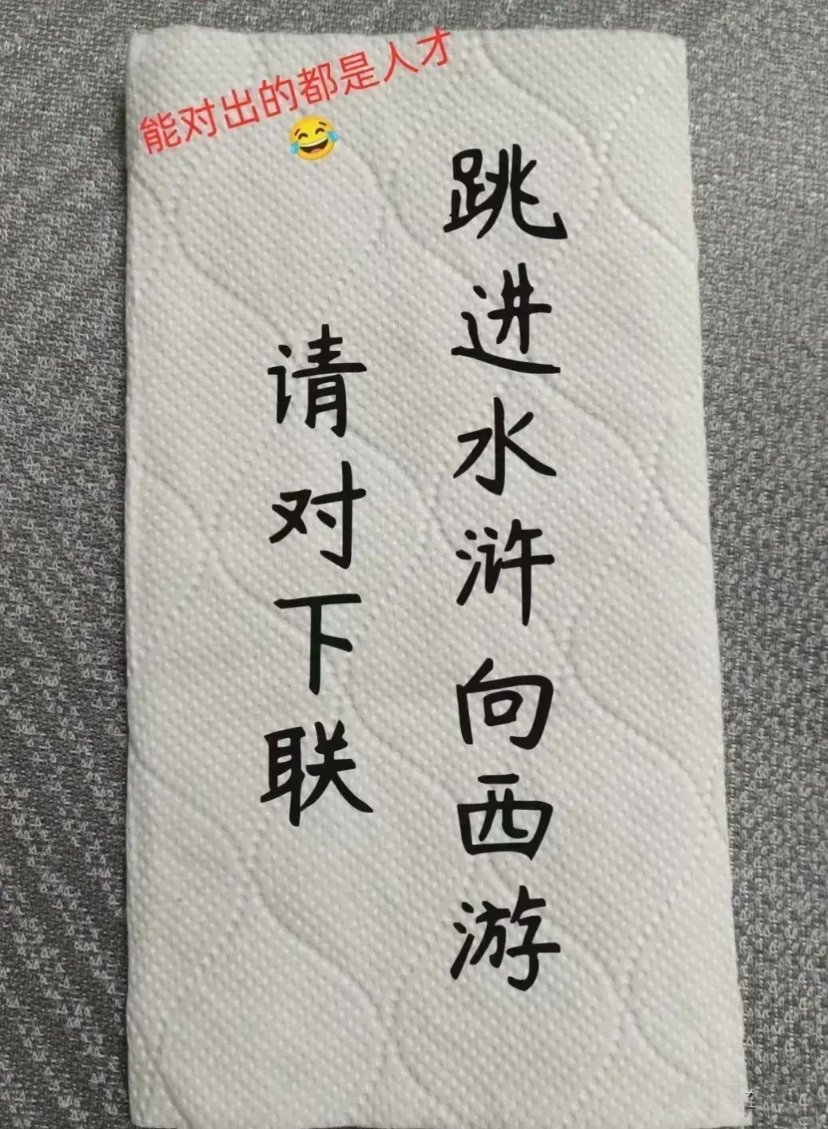 能对出的都是人才
😂
跳进水浒向西游
请对下联